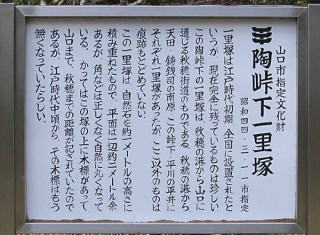 山口市指定文化財
陶峠下一里塚
昭和四四・三・一一 市指定
一里塚は江戸時代初期、全国に設置されたと
いうが、現在完全に残っているものは珍しい。
この陶峠の下一里塚は、秋穂の港から山口に
通じる秋穂街道のものである。秋穂の港から
天田・鋳銭司の南原・この峠下・平川の平井に
それぞれ一里塚があったが、ここ以外のものは
痕跡もとどめていない。
この一里塚は、自然石を約一メートルの高さに
積み重ねたもので、平面は一辺約三メートル余
あるが、角などは正しくなく自然に丸くなって
いる。かつてはこの塚の上に木標があって
山口まで、秋穂までの距離が記されていたので
あるが、江戸時代中頃から、その木標はもう
無くなっていたらしい。